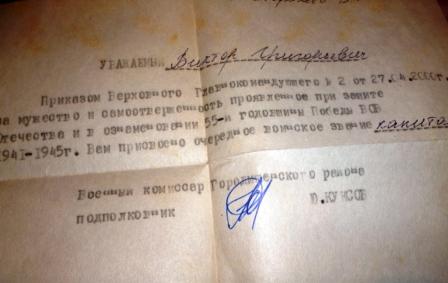 УВАЖАЕМЫЙ Виктор Григорьевич
Приказом Верховного Главнокомандующего № 2 от 27.04.2000г.
за мужество и самоотверженность проявленное при защите
Отечества и в ознаменовании 55-й годовщины Победы ВОВ
1941-1945г. Вам присвоено очередное воинское звание капитан
Военный комиссар Городищенского района
подполковник